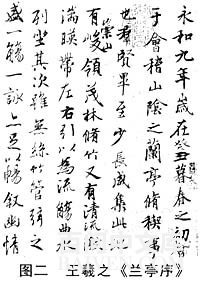 永和九年歲在癸丑暮春之初會
于會稽山陰之蘭亭脩稧事
也羣賢畢至少長咸集此地
有崇山峻領茂林脩竹又有清流激
湍暎帶左右引以為流觴曲水
列坐其次雖無絲竹管弦之
盛一觴一詠亦足以暢叙幽情
图二 王羲之《兰亭序》